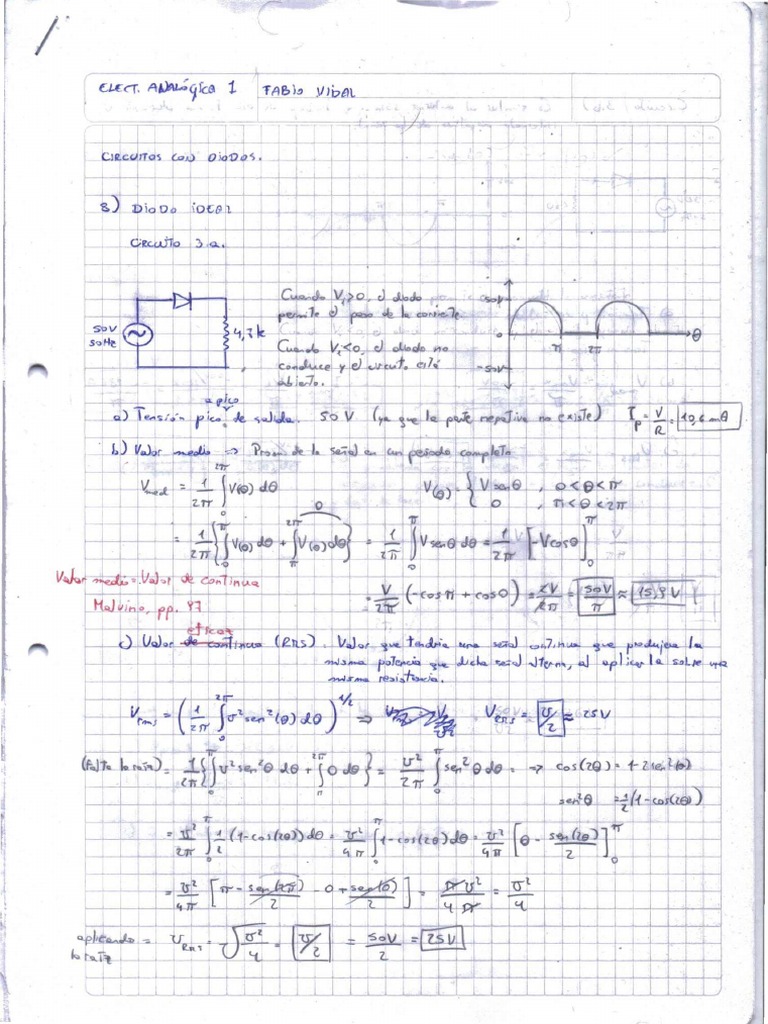 ELECT. ANALÓGICA 1 FABIO VIDAL
CIRCUITOS CON DIODOS.
3) DIODO IDEAL
CIRCUITO 3.a.
50V
50Hz
4,7k
Cuando Vi>0, el diodo
permite el paso de la corriente
Cuando Vi<0, el diodo no
conduce y el circuito está
abierto.
50V
0
-50V
π 2π θ
a) Tensión pico a pico de salida. 50V (ya que la parte negativa no existe) Ip = V/R = 10,6 mA
b) Valor medio ⇒ Prom. de la señal en un período completo
Vmed = 1/2π ∫₀^2π V(θ) dθ V(θ) = { V senθ , 0<θ<π
0 , π<θ<2π
= 1/2π {∫₀^π V(θ) dθ + ∫π^2π V(θ) dθ} = 1/2π ∫₀^π V senθ dθ = 1/2π [-V cosθ]₀^π
0
Valor medio = Valor de continua
Malvino, pp. 47
= V/2π (-cosπ + cos0) = 2V/2π = 50V/π ≈ 15,9V
c) Valor eficaz de continua (RMS). Valor que tendría una señal continua que produjera la
misma potencia que dicha señal alterna, al aplicarla sobre una
misma resistencia.
Vrms = (1/2π ∫₀^2π v² sen²(θ) dθ)^1/2 ⇒ VRMS = v/2 ≈ 25V
(Falta la raíz) = 1/2π {∫₀^π v² sen²θ dθ + ∫π^2π 0 dθ} = v²/2π ∫₀^π sen²θ dθ = → cos(2θ) = 1-2sen²(θ)
sen²θ = 1/2(1-cos(2θ))
= v²/2π ∫₀^π 1/2 (1-cos(2θ)) dθ = v²/4π ∫₀^π 1-cos(2θ) dθ = v²/4π [θ - sen(2θ)/2]₀^π
= v²/4π [π - sen(2π)/2 - 0 + sen(0)/2] = π v²/4 π = v²/4
aplicando
la raíz = VRMS = √v²/4 = v/2 = 50V/2 = 25V